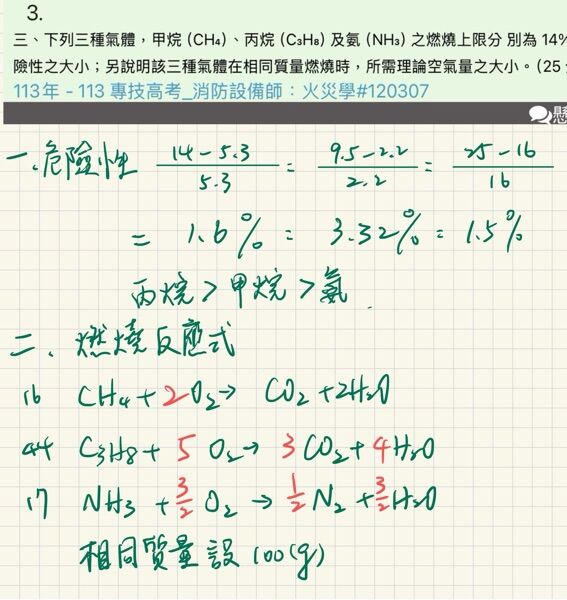 3.
三、下列三種氣體，甲烷 (CH₄)、丙烷 (C₃H₈) 及氨 (NH₃) 之燃燒上限分 別為 14%
險性之大小；另說明該三種氣體在相同質量燃燒時，所需理論空氣量之大小。(25
113年 - 113 專技高考_消防設備師：火災學#120307
一、危險性 (14-5.3)/5.3 = (9.5-2.2)/2.2 = (25-16)/16
= 1.6% = 3.32% = 1.5%
丙烷 > 甲烷 > 氨
二、燃燒反應式
16 CH₄ + 2O₂ → CO₂ + 2H₂O
44 C₃H₈ + 5 O₂ → 3 CO₂ + 4 H₂O
17 NH₃ + 3/2 O₂ → 1/2 N₂ + 3/2 H₂O
相同質量設 100(g)